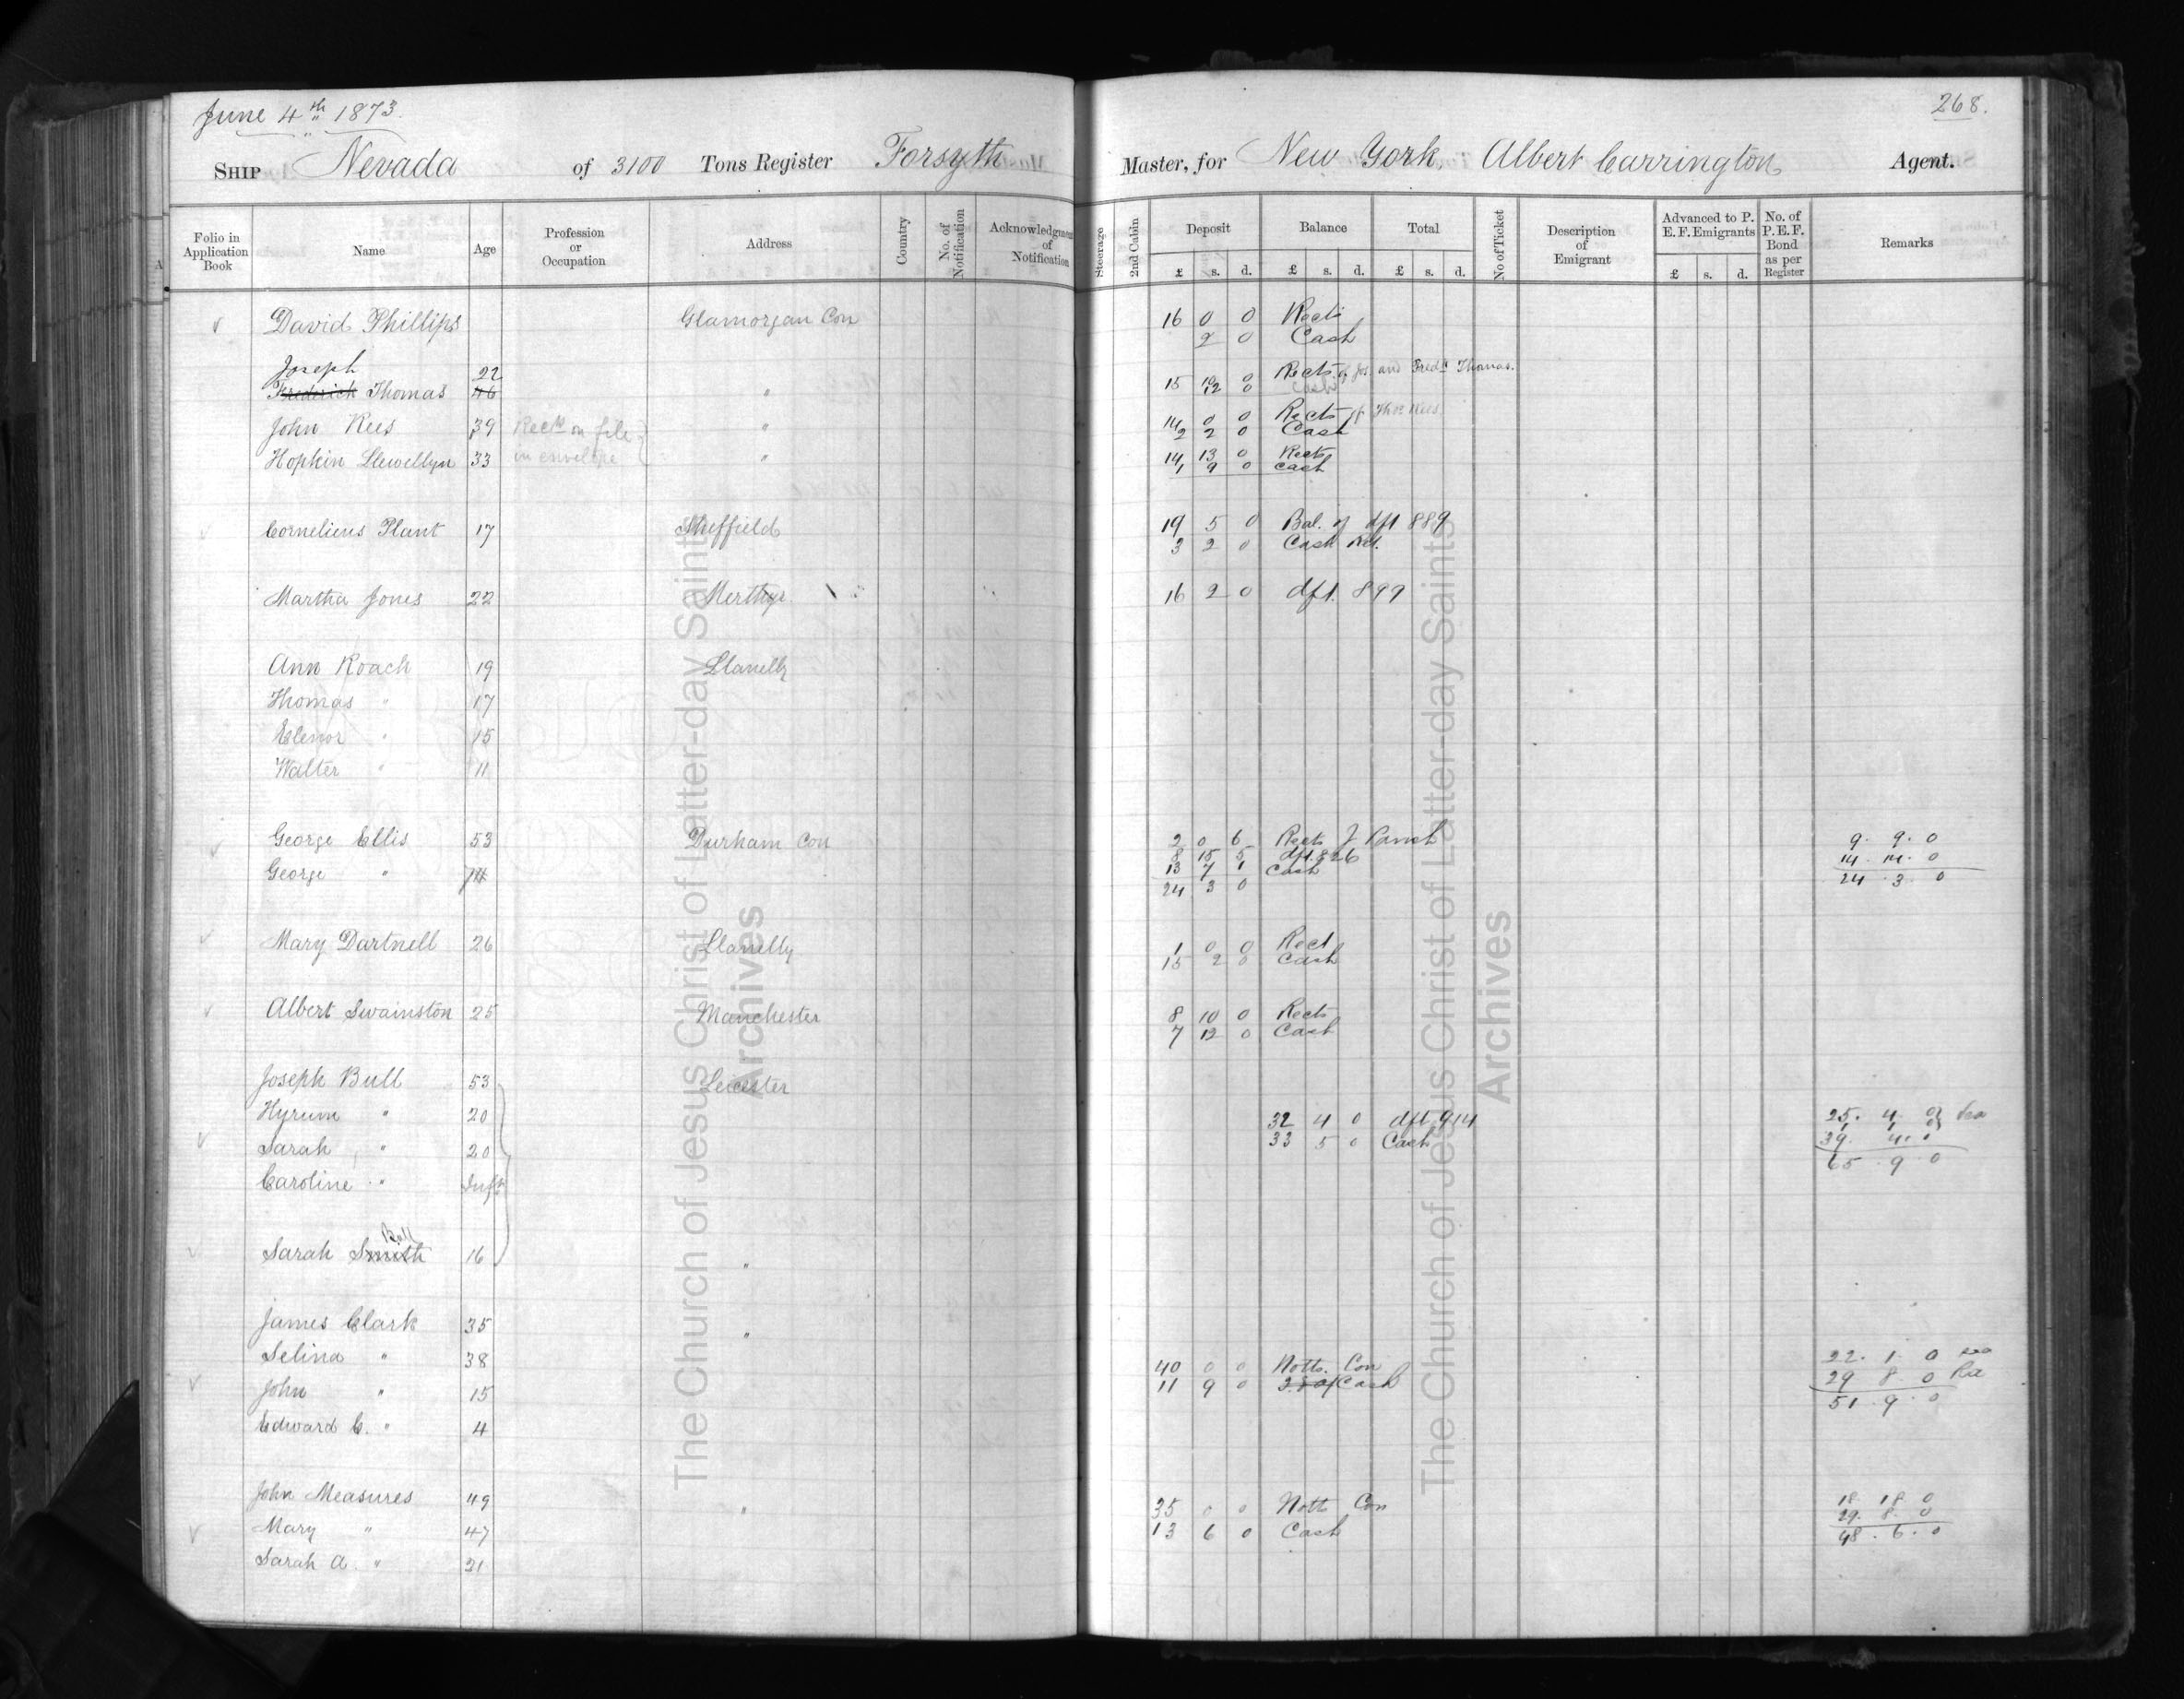 June 4th 1873.
268.
SHIP Nevada of 3100 Tons Register Forsyth Master, for New York, Albert Carrington Agent.
Folio in Application Book Name Age Profession or Occupation Address Country No. of Notification Acknowledgment of Notification Steerage 2nd Cabin Deposit Balance Total No of Ticket Description of Emigrant Advanced to P. E. F. Emigrants No. of P. E. F. Bond as per Register Remarks
£ s. d. £ s. d. £ s. d. £ s. d.
David Phillips Glamorgan Con 16 0 0 Rects
2 0 Cash
Joseph 22
Frederick Thomas 46 " 15 10 0 Rects of Jos and Fredk Thomas.
12 0 Cash
John Rees 39 Rects on file " 14 0 0 Rects of Thos Rees
2 2 0 Cash
Hopkin Llewellyn 33 in envelope " 14 13 0 Rects
1 9 0 Cash
Cornelieus Plant 17 Sheffield 19 5 0 Bal. of dft 889
3 2 0 Cash
Martha Jones 22 Merthyr 16 2 0 dft. 899
Ann Roach 19 Llanelly
Thomas " 17
Elenor " 15
Walter " 11
George Ellis 53 Durham Con 2 0 6 Rects J Parish 9. 9. 0
8 15 5 dft. 826 14. 14. 0
George " 13 7 1 Cash 24. 3. 0
24 3 0
Mary Dartnell 26 Llanelly 1 0 0 Rect
15 2 0 Cash
Albert Swainston 25 Manchester 8 10 0 Rects
7 12 0 Cash
Joseph Bull 53 Leicester
Hyrum " 20 32 4 0 dft 914 25. 4. 0
Sarah " 20 33 5 0 Cash 39. 4.
65. 9. 0
Caroline " Inft
Bull
Sarah Smith 16 "
James Clark 35 "
Selina " 38 40 0 0 Notts. Con 22. 1. 0
John " 15 11 9 0 Cash 29 8. 0
51. 9. 0
Edward C. " 4
John Measures 49 " 35 0 0 Notts Con 18 18 0
29. 8. 0
Mary " 47 13 6 0 Cash 48. 6. 0
Sarah A. " 21
The Church of Jesus Christ of Latter-day Saints
Archives
The Church of Jesus Christ of Latter-day Saints
Archives